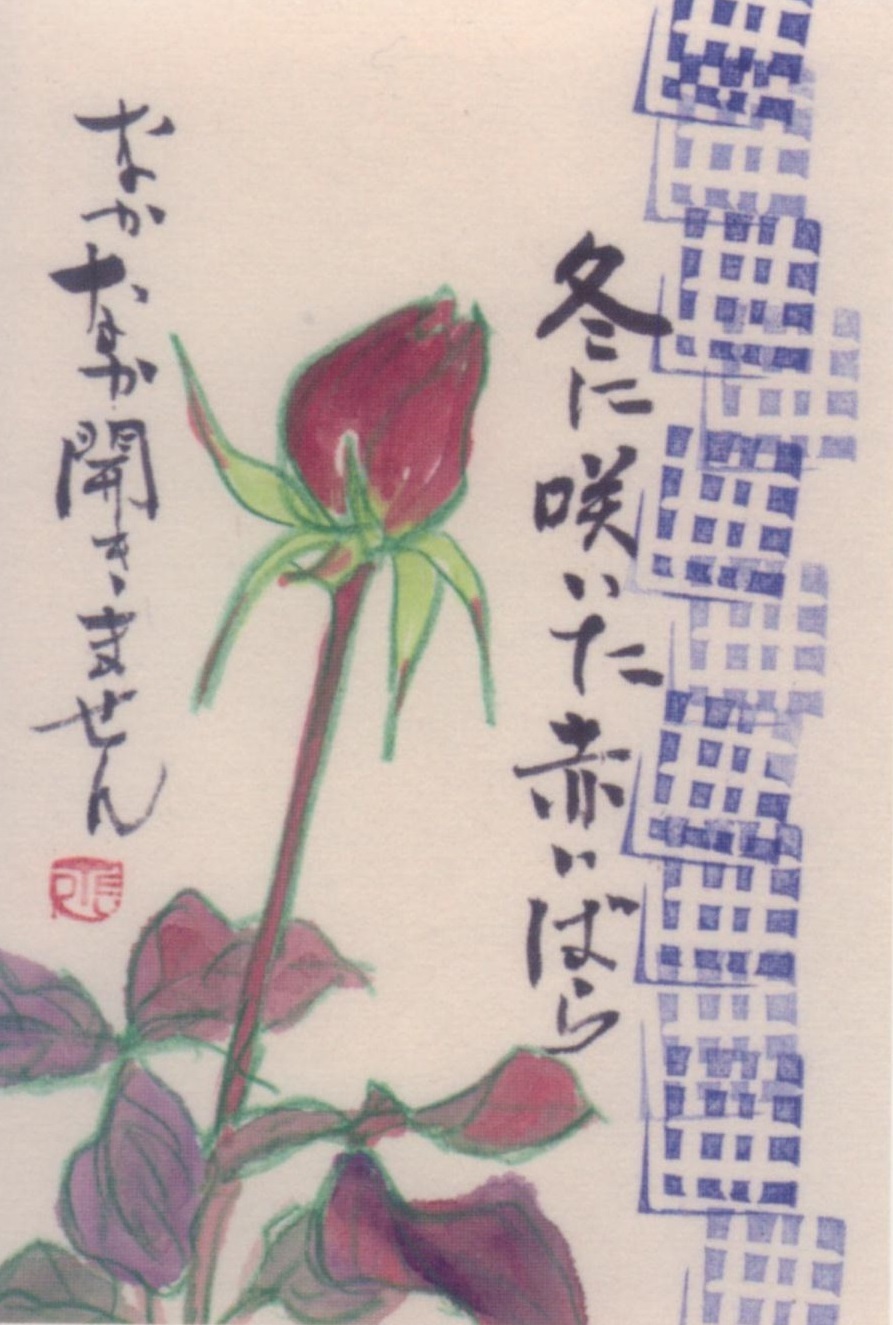 冬に咲いた赤いばら
なかなか開きません